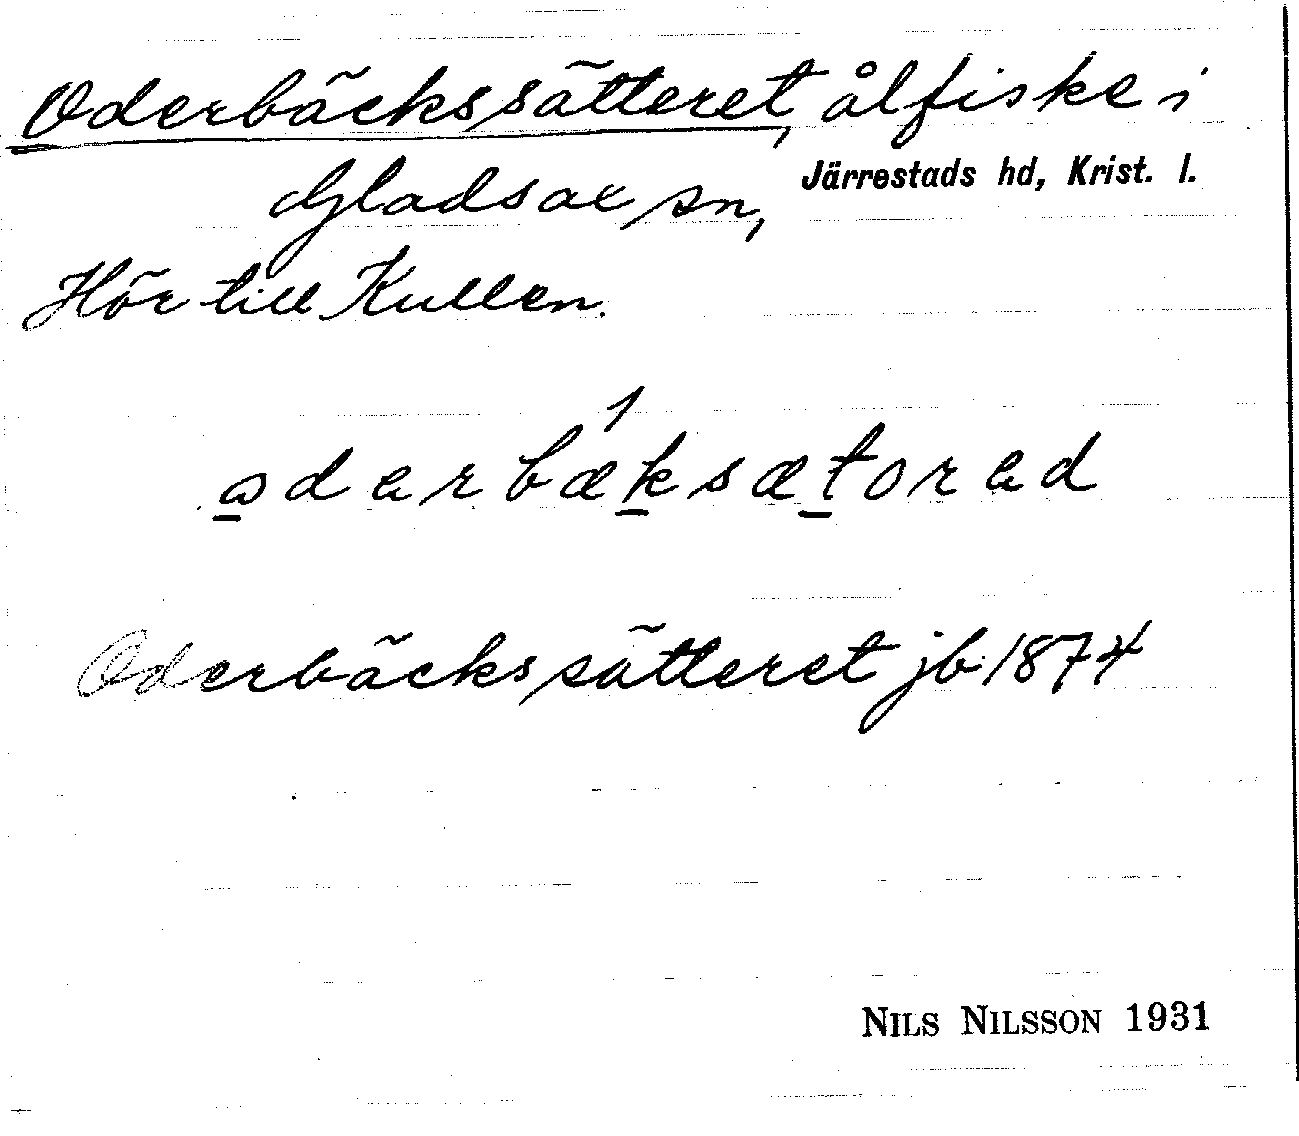 Oderbäckssätteret, ålfiske i
Gladsax sn, Järrestads hd, Krist. l.
Hör till Kullen.
Oderbäckssätteret jb 1874
NILS NILSSON 1931